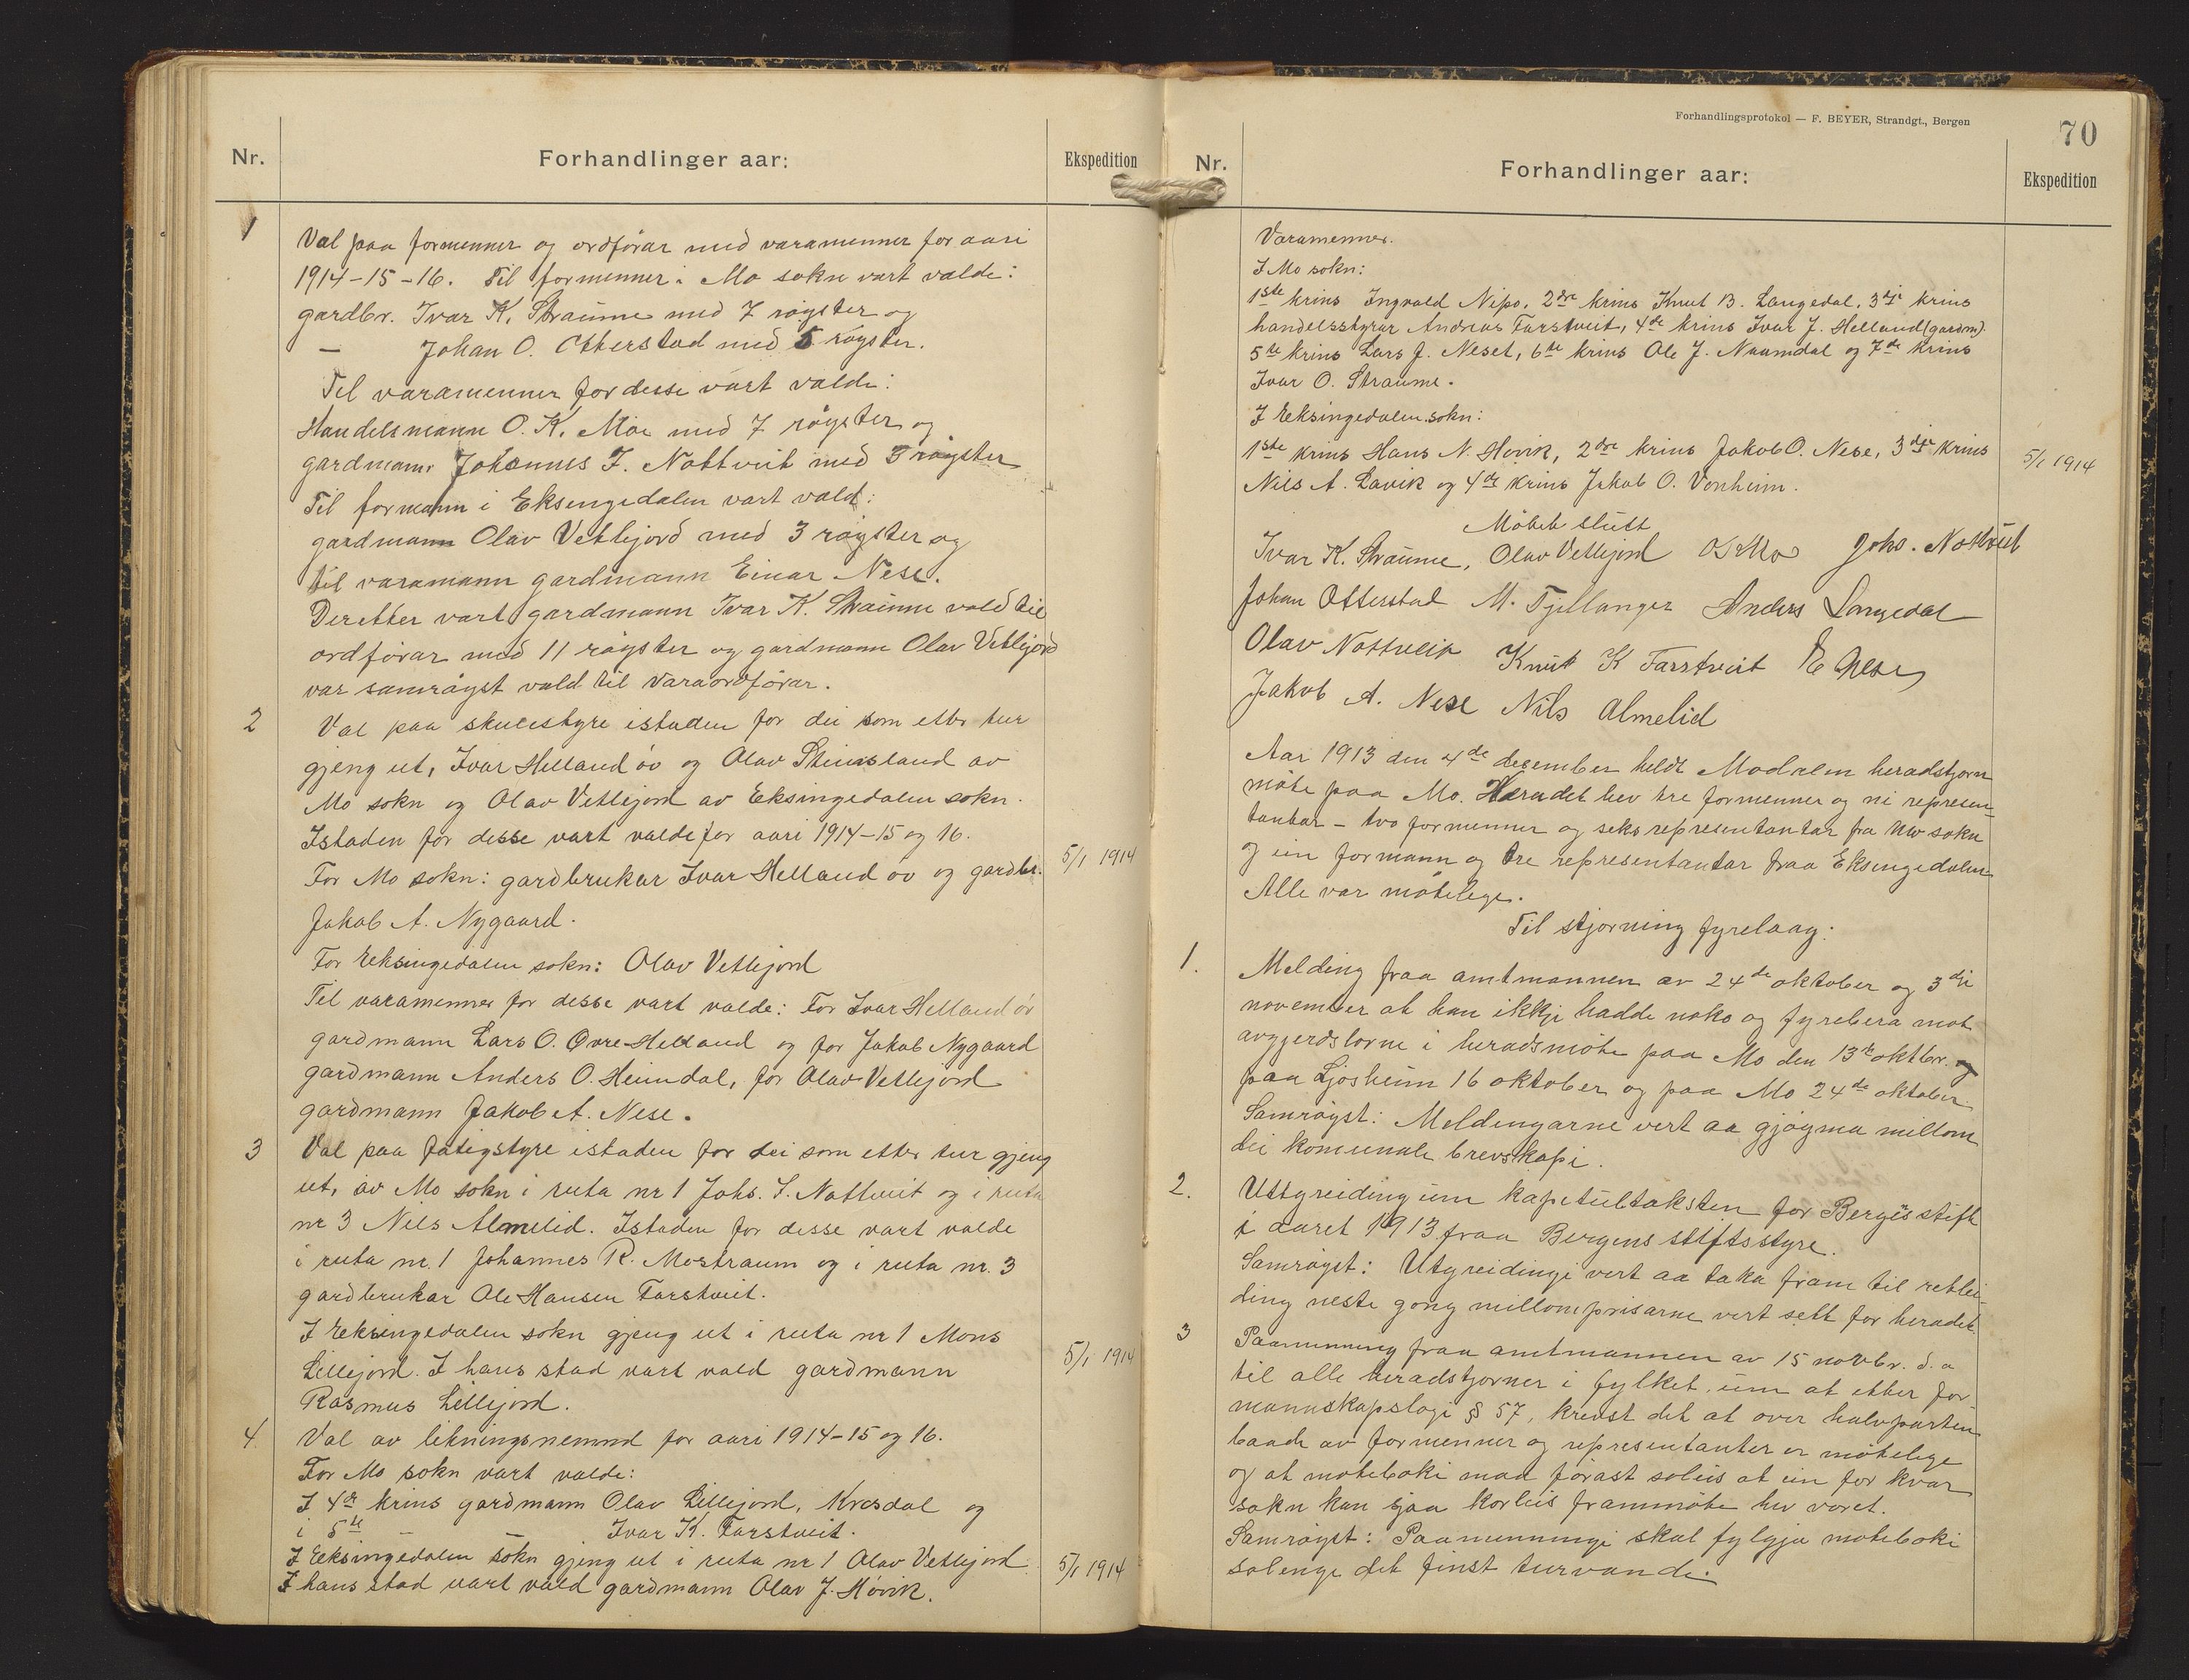 Nr.
Forhandlinger aar:
Ekspedition
1
Val paa formenner og ordførar med varamenner for aari
1914-15-16. Til formenner i Mo sokn vart valde:
gardbr. Ivar K. Straume med 7 røyster og
— Johan O. Otterstad med 5 røyster.
Til varamenner for desse vart valde:
Handelsmann O. K. Moe med 7 røyster og
gardmann Johannes J. Nottveit med 5 røyster
Til formann i Eksingedalen vart vald:
gardmann Olav Vetlejord med 3 røyster og
til varamann gardmann Einar Nese.
Deretter vart gardmann Ivar K. Straume vald til
ordførar med 11 røyster og gardmann Olav Vetlejord
var samrøyst vald til varaordførar.
2
Val paa skulestyre istaden for dei som etter tur
gjeng ut, Ivar Helland øv og Olav Steinsland av
Mo sokn og Olav Vetlejord av Eksingedalen sokn.
Istaden for desse vart valde for aari 1914-15 og 16.
For Mo sokn: gardbrukar Ivar Helland øv og gardbr.
5/1 1914
Jakob A. Nygaard.
For Eksingedalen sokn: Olav Vetlejord
Til varamenner for desse vart valde: For Ivar Helland øv
gardmann Lars O. Øvre-Helland og for Jakob Nygaard
gardmann Anders O. Heimdal, for Olav Vetlejord
gardmann Jakob A. Nese.
3
Val paa fatigstyre istaden for dei som etter tur gjeng
ut, av Mo sokn i ruta nr 1 Johs. J. Nottveit og i ruta
nr 3 Nils Almelid. Istaden for desse vart valde
i ruta nr. 1 Johannes R. Mostraum og i ruta nr. 3
gardbrukar Ole Hansen Farstveit.
I Eksingedalen sokn gjeng ut i ruta nr 1 Mons
5/1 1914
Lillejord. I hans stad vart vald gardmann
Rasmus Lillejord.
4.
Val av likningsnemnd for aari 1914-15 og 16.
For Mo sokn vart valde:
I 4de krins gardmann Olav Lillejord, Krosdal og
i 5te — — Ivar K. Farstveit.
I Eksingedalen sokn gjeng ut i ruta nr 1 Olav Vetlejord
5/1 1914
I hans stad vart vald gardmann Olav J. Høvik.
Forhandlingsprotokol — F. BEYER, Strandgt., Bergen
70
Nr.
Forhandlinger aar:
Ekspedition
Varamenner.
I Mo sokn:
1ste krins Ingvald Nipo, 2dre krins Knut B. Langedal, 3dje krins
handelsstyrar Andreas Farstveit, 4de krins Ivar J. Helland (gardm).
5te krins Lars J. Neset, 6te krins Ole J. Naamdal og 7de krins
Ivar O. Straume.
I Eksingedalen sokn:
1ste krins Hans N. Høvik, 2dre krins Jakob O. Nese, 3dje krins
5/1 1914
Nils A. Lavik og 4de krins Jakob O. Vonheim.
Møtet slutt
Ivar K. Straume, Olav Vetlejord OKMo Johs. Nottveit
Johan Otterstad M. Tjellanger Anders Langedal
Olav Nottveit Knut K Farstveit E Nese
Jakob A. Nese Nils Almelid
Aar 1913 den 4de desember heldt Modalen heradstjorn
møte paa Mo. Heradet hev tre formenner og ni represen-
tantar - tvo formenner og seks representantar fra Mo sokn
og ein formann og tre representantar fraa Eksingedalen
Alle var møtelege.
Til stjorning fyrelaag:
1.
Melding fraa amtmannen av 24de oktober og 3dje
november at han ikkje hadde noko og fyrebera mot
avgjerdslorne i heradsmøte paa Mo den 13de oktbr. og
paa Ljosheim 16 oktober og paa Mo 24de oktober.
Samrøyst: Meldingarne vert aa gjøyma millom
dei komunale brevskapi.
2.
Utgreiding um kapitultaksten for Bergens stift
i aaret 1913 fraa Bergens stiftsstyre.
Samrøyst: Utgreidingi vert aa taka fram til rettlei-
ding neste gong millomprisarne vert sett for heradet.
3
Paaminning fraa amtmannen av 15 novbr. d. a
til alle heradstjorner i fylket um at etter for-
mannskapslogi § 57, krevst det at over halvparten
baade av formenner og representanter er møtelege
og at møteboki maa førast soleis at ein for kvar
sokn kan sjaa korleis frammøte hev voret.
Samrøyst: Paaminningi skal fylgja møteboki
solenge det finst turvande.